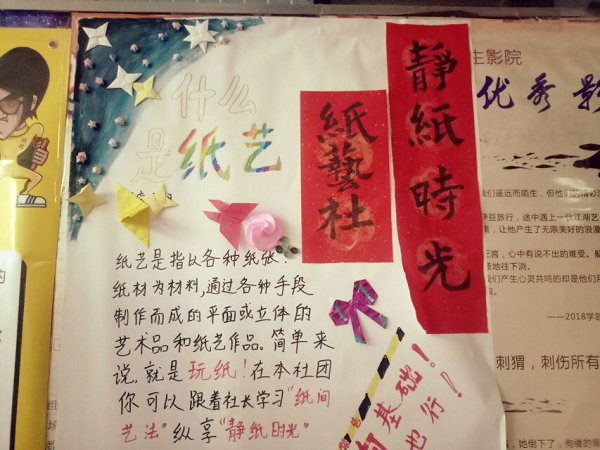 什么
是纸艺
紙藝社
靜紙時光
纸艺是指以各种纸张、
纸材为材料,通过各种手段
制作而成的平面或立体的
艺术品和纸艺作品。简单来
说,就是玩纸!在本社团
你可以跟着社长学习“纸间
艺法”纵享“静纸时光”
基础!
也行!
生影院
优秀影
们遥远而陌生，但他们的精彩
途中遇上一伙江湖艺
让他产生了无限美好的浪漫
言，心中有说不出的难受。
往下淌。
们产生心灵共鸣的却是他们
——2018学
刺猬，刺伤所有